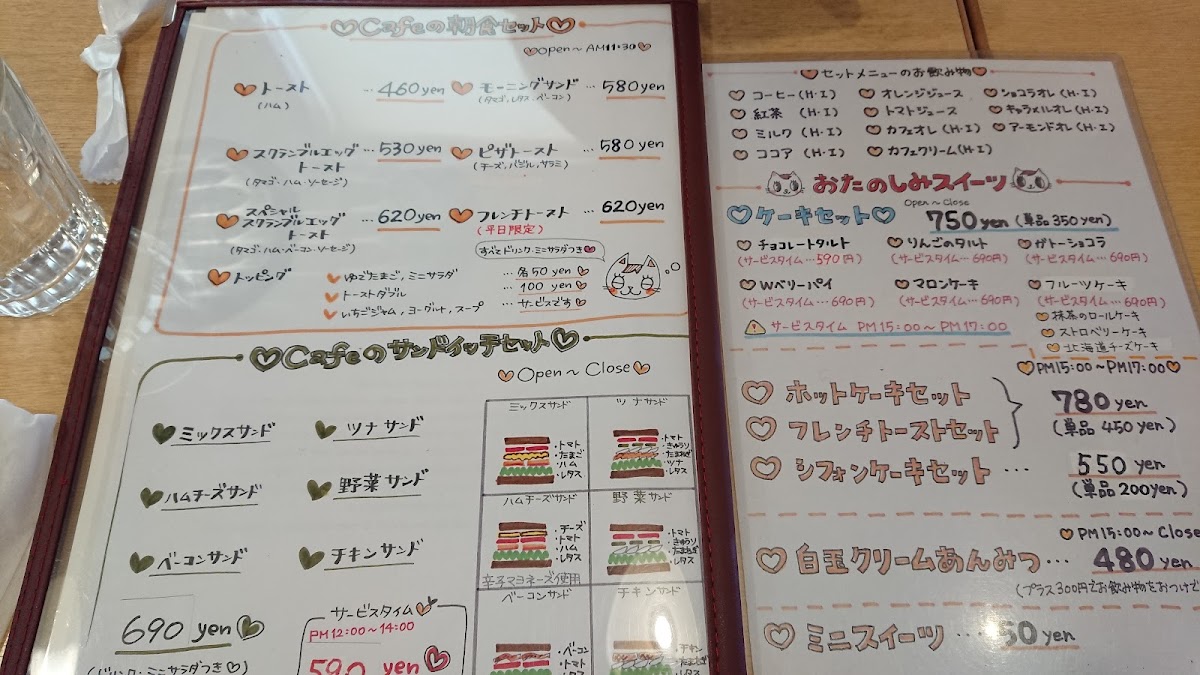 Cafeの朝食セット
Open～AM11:30
トースト … 460yen
(ハム)
モーニングサンド … 580yen
(タマゴ・レタス・ベーコン)
スクランブルエッグトースト … 530yen
(タマゴ・ハム・ソーセージ)
ピザトースト … 580yen
(チーズ,バジル,サラミ)
スペシャル
スクランブルエッグ … 620yen
トースト
(タマゴ・ハム・ベーコン・ソーセージ)
フレンチトースト … 620yen
(平日限定)
すべてドリンク・ミニサラダつき
トッピング
ゆでたまご,ミニサラダ … 各50yen
トーストダブル … 100yen
いちごジャム,ヨーグルト,スープ … サービスです
Cafeのサンドイッチセット
Open～Close
ミックスサンド
ツナサンド
ハムチーズサンド
野菜サンド
ベーコンサンド
チキンサンド
690yen
(ドリンク・ミニサラダつき)
サービスタイム
PM12:00～14:00
590yen
ミックスサンド
・トマト
・たまご
・ハム
・レタス
ツナサンド
・トマト
・きゅうり
・たまねぎ
・ツナ
・レタス
ハムチーズサンド
・チーズ
・トマト
・ハム
・レタス
辛子マヨネーズ使用
野菜サンド
・トマト
・きゅうり
・たまねぎ
・レタス
ベーコンサンド
・ベーコン
・トマト
チキンサンド
・チキン
・たまねぎ
・レタス
セットメニューのお飲み物
コーヒー(H・I)
オレンジジュース
ショコラオレ(H・I)
紅茶 (H・I)
トマトジュース
キャラメルオレ(H・I)
ミルク (H・I)
カフェオレ (H・I)
アーモンドオレ(H・I)
ココア (H・I)
カフェクリーム(H・I)
おたのしみスイーツ
Open～Close
ケーキセット 750yen(単品350yen)
チョコレートタルト
(サービスタイム…590円)
りんごのタルト
(サービスタイム…690円)
ガトーショコラ
(サービスタイム…690円)
Wベリーパイ
(サービスタイム…690円)
マロンケーキ
(サービスタイム…690円)
フルーツケーキ
(サービスタイム…690円)
抹茶のロールケーキ
ストロベリーケーキ
北海道チーズケーキ
サービスタイム PM15:00～PM17:00
PM15:00～PM17:00
ホットケーキセット
フレンチトーストセット
780yen
(単品450yen)
シフォンケーキセット … 550yen
(単品200yen)
PM15:00～Close
白玉クリームあんみつ … 480yen
(プラス300円でお飲み物をおつけで
ミニスイーツ … 50yen